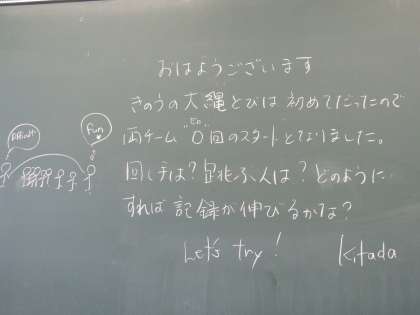 おはようございます
きのうの大縄とびは初めてだったので
両チーム"0"回のスタートとなりました。
回し手は?跳ぶ人は?どのように
すれば記録が伸びるかな?
Let's try! Kitada
Difficult
Fun